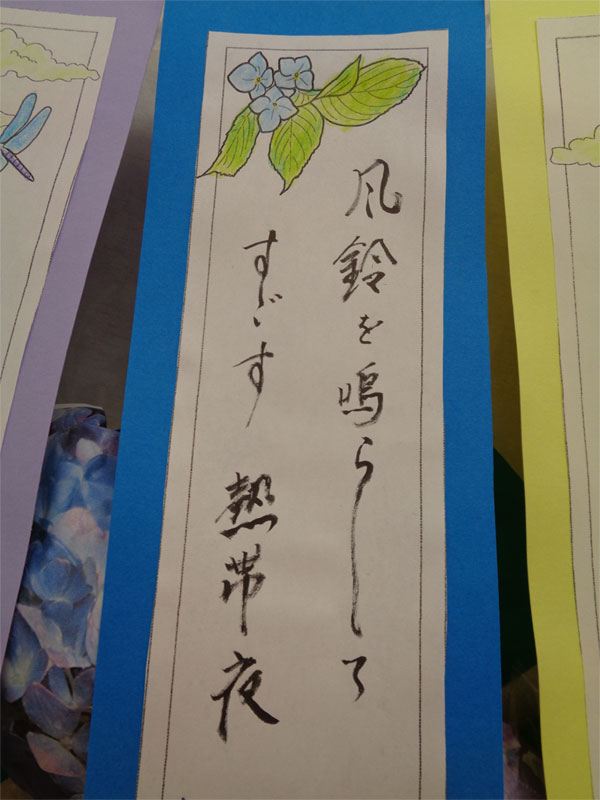 風鈴を鳴らして
すごす 熱帯夜